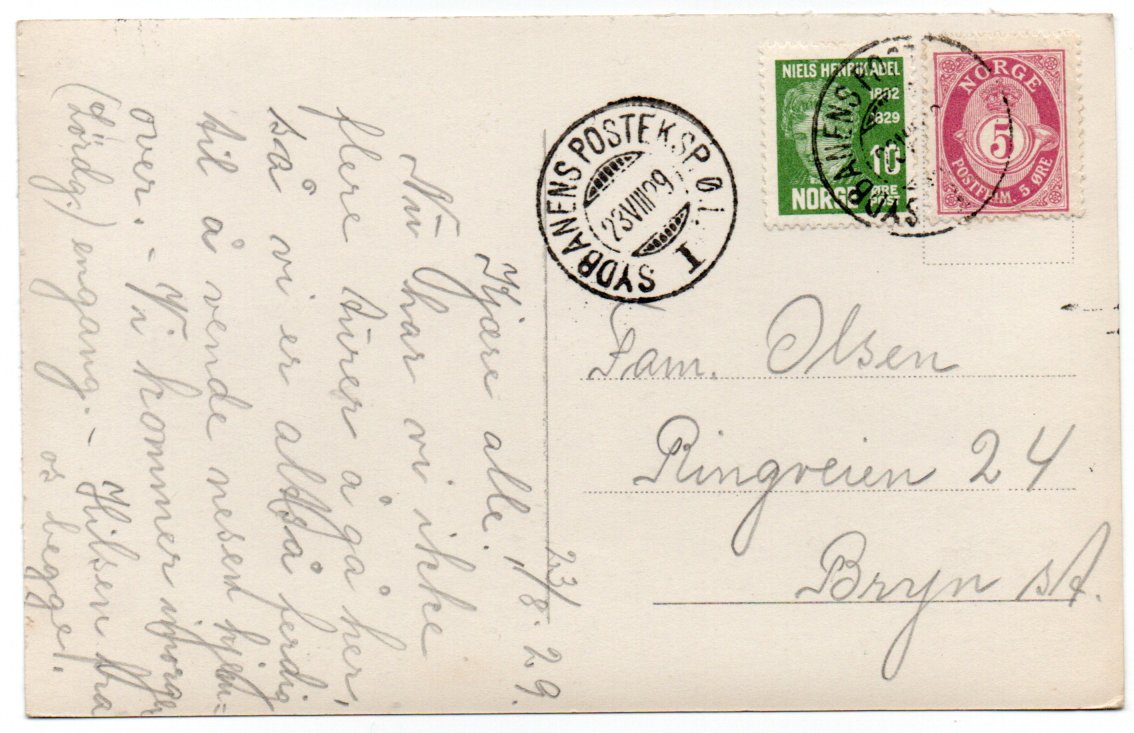 23/8. 29.
Kjære alle!
Nu har vi ikke
flere turer å gå her,
så vi er altså ferdig
til å vende nesen hjem-
over. - Vi kommer imorgen
(Lørdg.) engang. - Hilsen fra
os begge!
SYDBANENS POSTEKSP. Ø. I.
23 VIII 29
I
NIELS HENRIK ABEL
1802
1829
10
ØRE
POST
NORGE
NORGE
5
POSTFRIM. 5 ØRE
SYDBANENS POST
Fam. Olsen
Ringveien 24
Bryn st.